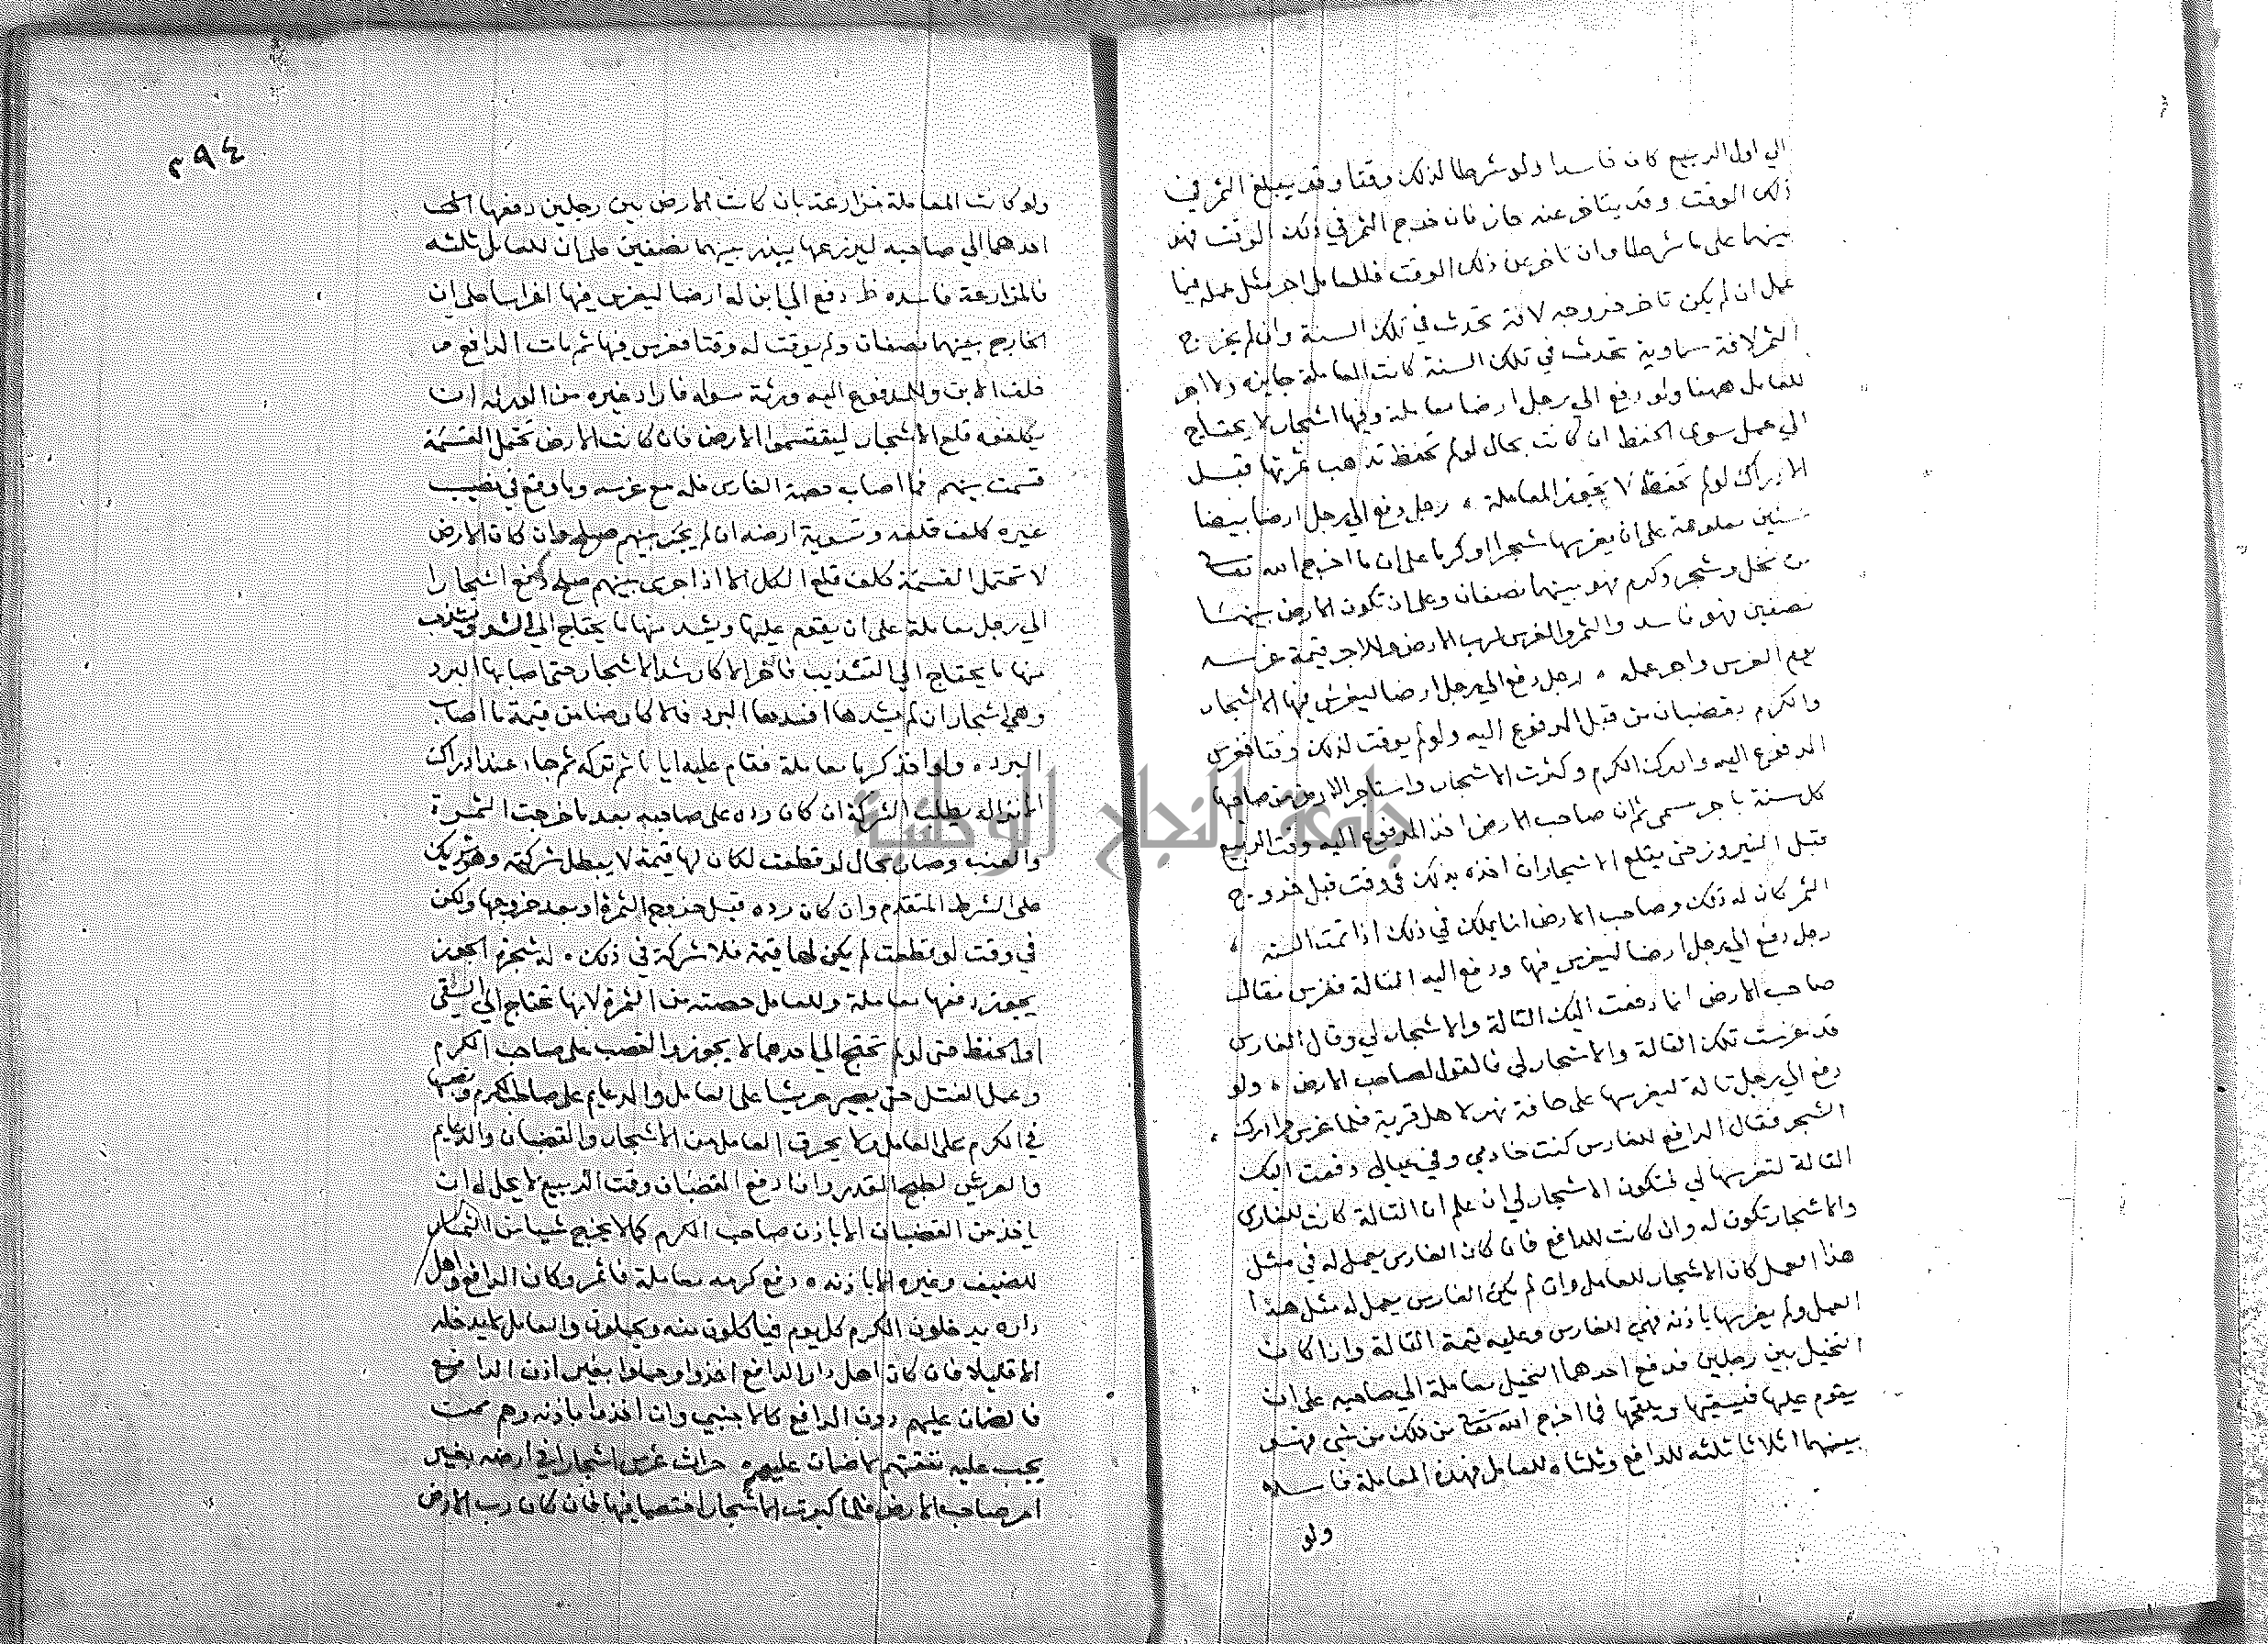 الي اول الربيع كان فاسدا ولو شرطا لذلك وقتا وقد يبلغ الثمر في
ذلك الوقت وقد يتاخر عنه جاز فان خرج الثمر في ذلك الوقت فهو
بينهما على ما شرطا وان تاخر عن ذلك الوقت فللعامل اجر مثل عمله فيما
عمل ان لم يكن تاخر خروجه لافة تحدث في تلك السنة وان لم يخرج
الثمر لافة سماوية تحدث في تلك السنة كانت المعاملة جايزه ولا اجر
للعامل ههنا ولو دفع الي رجل ارضا معاملة وفيها اشجار لا يحتاج
الي عمل سوى الحفظ ان كانت بحال لو لم تحفظ تذهب ثمرتها قبل
الادراك لو لم تحفظ لا تجوز المعاملة ، رجل دفع الي رجل ارضا بيضا
سنين معلومة على ان يغرسها شجرا او كرما على ان ما اخرج الله تعالى
من نخل وشجر وكرم فهو بينهما نصفان وعلى ان تكون الارض بينهما
نصفين فهو فاسد والثمر والغرس لرب الارض وللاجر قيمة غرسه
يوم الغرس واجر عمله ، رجل دفع الي رجل ارضا ليغرس فيها الاشجار
والكرم بقضبان من قبل المدفوع اليه ولو لم يوقت لذلك وقتا فغرس
المدفوع اليه وادرك الكرم وكثرت الاشجار واستاجر الارض من صاحبها
كل سنة باجر مسمى ثم ان صاحب الارض اخذ المدفوع اليه وقت الربيع
قبل النيروز حتى يقلع الاشجار ان اخذه بذلك في وقت قبل خروج
الثمر كان له ذلك وصاحب الارض انما يملك في ذلك اذا تمت السنه ،
رجل دفع الي رجل ارضا ليغرس فيها ودفع اليه التالة فغرس فقال
صاحب الارض انما دفعت اليك التالة والاشجار لي وقال الغارس
قد غرست تلك التالة والاشجار لي فالقول لصاحب الارض ، ولو
دفع الي رجل تالة ليغرسها على حافة نهر لاهل قرية فلما غرس وادرك
الشجر فقال الدافع للغارس كنت خادمي وفي عيالي دفعت اليك
التالة لتغرسها لي فتكون الاشجار لي ان علم ان التالة كانت للغارس
والاشجار تكون له وان كانت للدافع فان كان الغارس يعمل له في مثل
هذا العمل كان الاشجار للعامل وان لم يكن الغارس يعمل له مثل هذا
العمل ولم يغرسها باذنه فهي للغارس وعليه قيمة التالة واذا كان
النخيل بين رجلين فدفع احدهما النخيل معاملة الي صاحبه على ان
يقوم عليها فيسقيها ويلقحها فما اخرج الله تعالى من ذلك من شي فهو
بينهما اثلاثا ثلثه للدافع وثلثاه للعامل فهذه المعاملة فاسده
ولو
٢٩٤
ولو كانت المعاملة مزارعة بان كانت الارض بين رجلين دفعها
احدهما الي صاحبه ليزرعها ببذر بينهما نصفين على ان للعامل ثلثه
فالمزارعة فاسده دفع الي ابن له ارضا ليغرس فيها اغراسا على ان
الخارج بينهما نصفان ولم يوقت له وقتا فغرس فيها ثم مات الدافع
فخلف الابن وللمدفوع اليه ورثة سواه فاراد غيره من الورثه ان
يكلفوه قلع الاشجار ليقتسموا الارض فان كانت الارض تحتمل القسمة
قسمت بينهم فما اصاب حصة الغارس فله مع غرسه وما وقع في نصيب
غيره كلف قلعه وتسوية ارضه ان لم يجر بينهم صلح وان كان الارض
لا تحتمل القسمة كلف قلع الكل الا اذا جرى بينهم صلح دفع اشجارا
الي رجل معاملة على ان يقوم عليها ويشد منها ما يحتاج الي الشد ويشذب
منها ما يحتاج الي التشذيب فاخر الاكار شد الاشجار حتى اصابها البرد
وهي اشجار ان لم يشدها افسدها البرد فالاكار ضامن قيمة ما اصاب
البرد ، ولو اخذ كرما معاملة فقام عليه اياما ثم تركه ثم جا عند ادراك
يطلب الشركة ان كان رده على صاحبه بعد ما خرجت الثمرة
والعنب وصار بحال لو قطعت لكان لها قيمة لا يبطل شركته وهو شريك
على الشرط المتقدم وان كان رده قبل خروج الثمرة او بعد خروجها ولكن
في وقت لو قطعت لم يكن لها قيمة فلا شركة في ذلك ، له شجرة الجوز
يجوز دفعها معاملة وللعامل حصته من الثمرة لانها تحتاج الي السقي
او الحفظ حتى لو لم تحتج الي احدهما لا يجوز والقصب على صاحب الكرم
وعمل الفتل حتى يصير عريشا على العامل والدعايم على صاحب الكرم ونصبها
في الكرم على العامل ولا يحرق العامل من الاشجار والقضبان والدعايم
والعريش لطبخ القدر وان رفع القضبان وقت الربيع لا يحل له ان
ياخذ من القضبان الا باذن صاحب الكرم كما لا يخرج شيا من الثمار
للضيف وغيره الا باذنه ، دفع كرمه معاملة فاثمر وكان الدافع واهل
داره يدخلون الكرم كل يوم فياكلون منه ويحملون والعامل لا يدخله
الا قليلا فان كان اهل دار الدافع اخذوا وحملوا بغير اذن الدافع
فالضمان عليهم دون الدافع كالاجنبي وان اخذوا باذنه وهم ممن
يجب عليه نفقتهم لا ضمان عليهم ، حراث غرس اشجارا في ارضه بغير
امر صاحب الارض فلما كبرت الاشجار اختصما فيها فان كان رب الارض